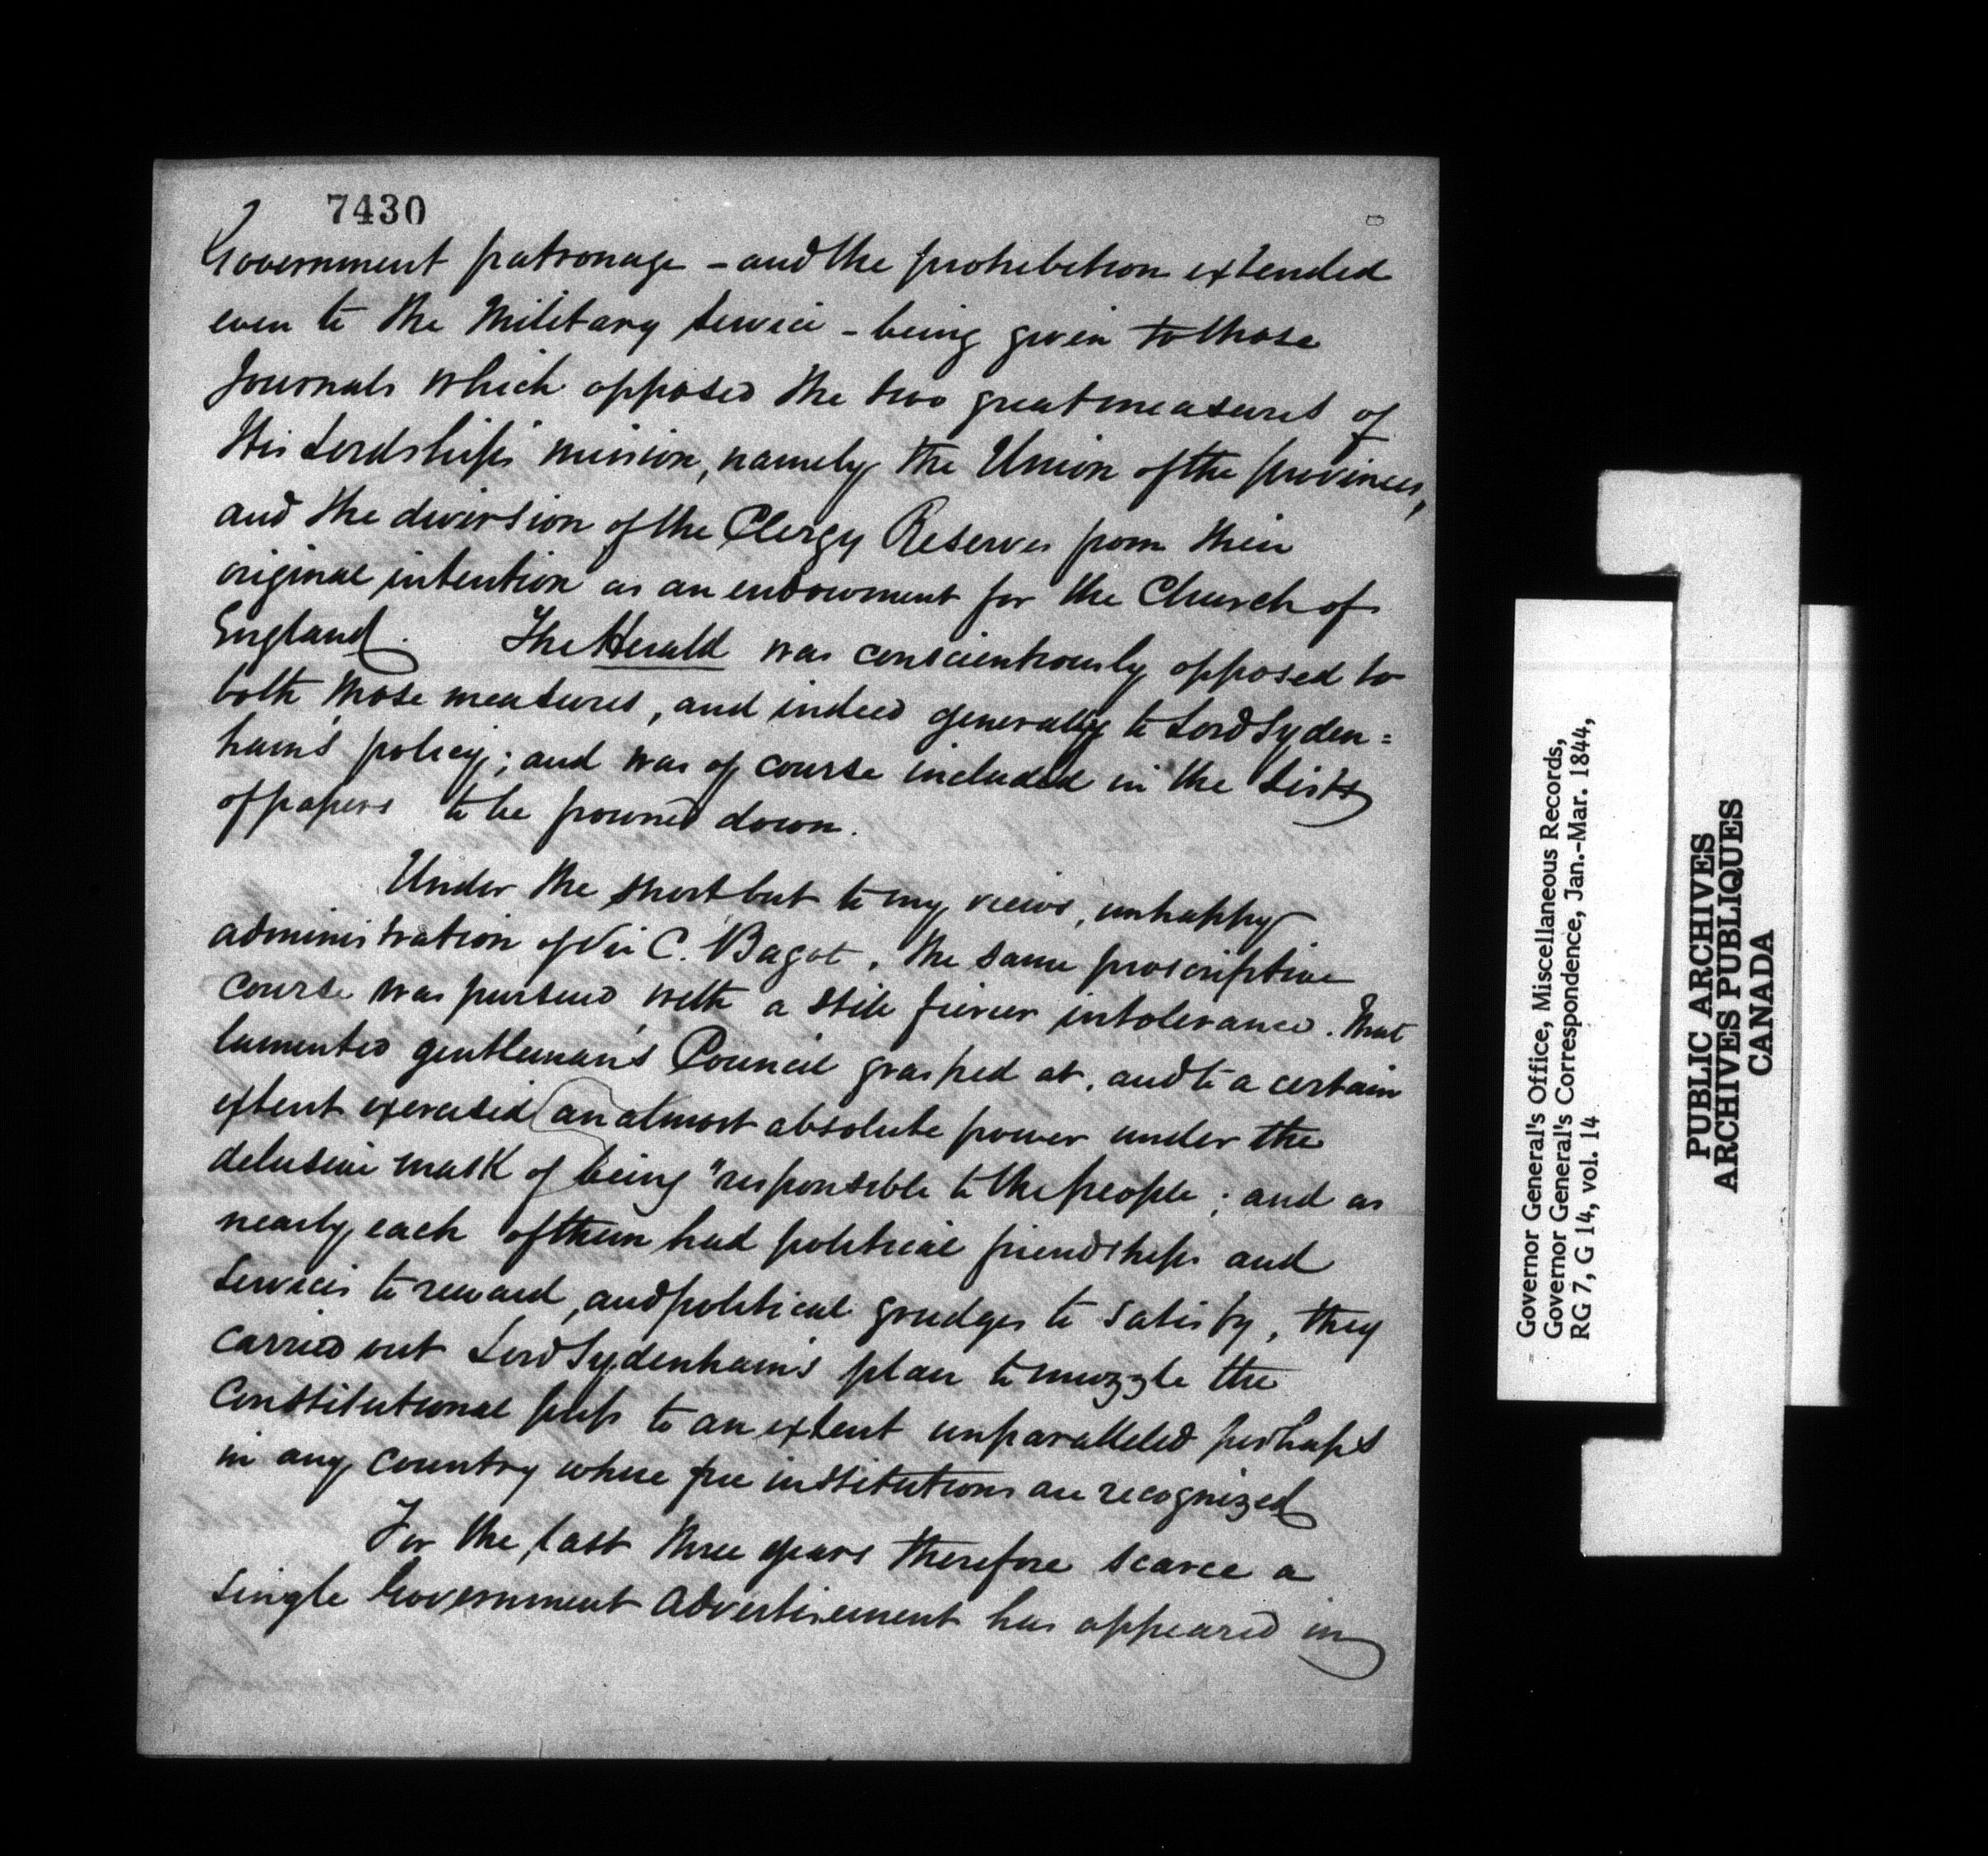 7430
Government patronage - and the prohibition extended
even to the Military Service - being given to those
Journals which opposed the two great measures of
His Lordship's mission, namely the Union of the provinces,
and the diversion of the Clergy Reserves from their
original intention as an endowment for the Church of
England. The Herald was conscientiously opposed to
both those measures, and indeed generally to Lord Syden=
ham's policy; and was of course included in the Lists
of papers to be frowned down.
Under the short but to my views, unhappy
administration of Sir C. Bagot, the same proscriptive
course was pursued with a still fiercer intolerance. That
lamented gentleman's Council grasped at, and to a certain
extent exercised an almost absolute power under the
delusive mask of being "responsible to the people; and as
nearly each of them had political friendships and
services to reward, and political grudges to satisfy, they
carried out Lord Sydenham's plan to muzzle the
Constitutional press to an extent unparalleled perhaps
in any country where free institutions are recognized
For the last three years therefore scarce a
single Government advertisement has appeared in
Governor General's Office, Miscellaneous Records,
Governor General's Correspondence, Jan.-Mar. 1844,
RG 7, G 14, vol. 14
PUBLIC ARCHIVES
ARCHIVES PUBLIQUES
CANADA